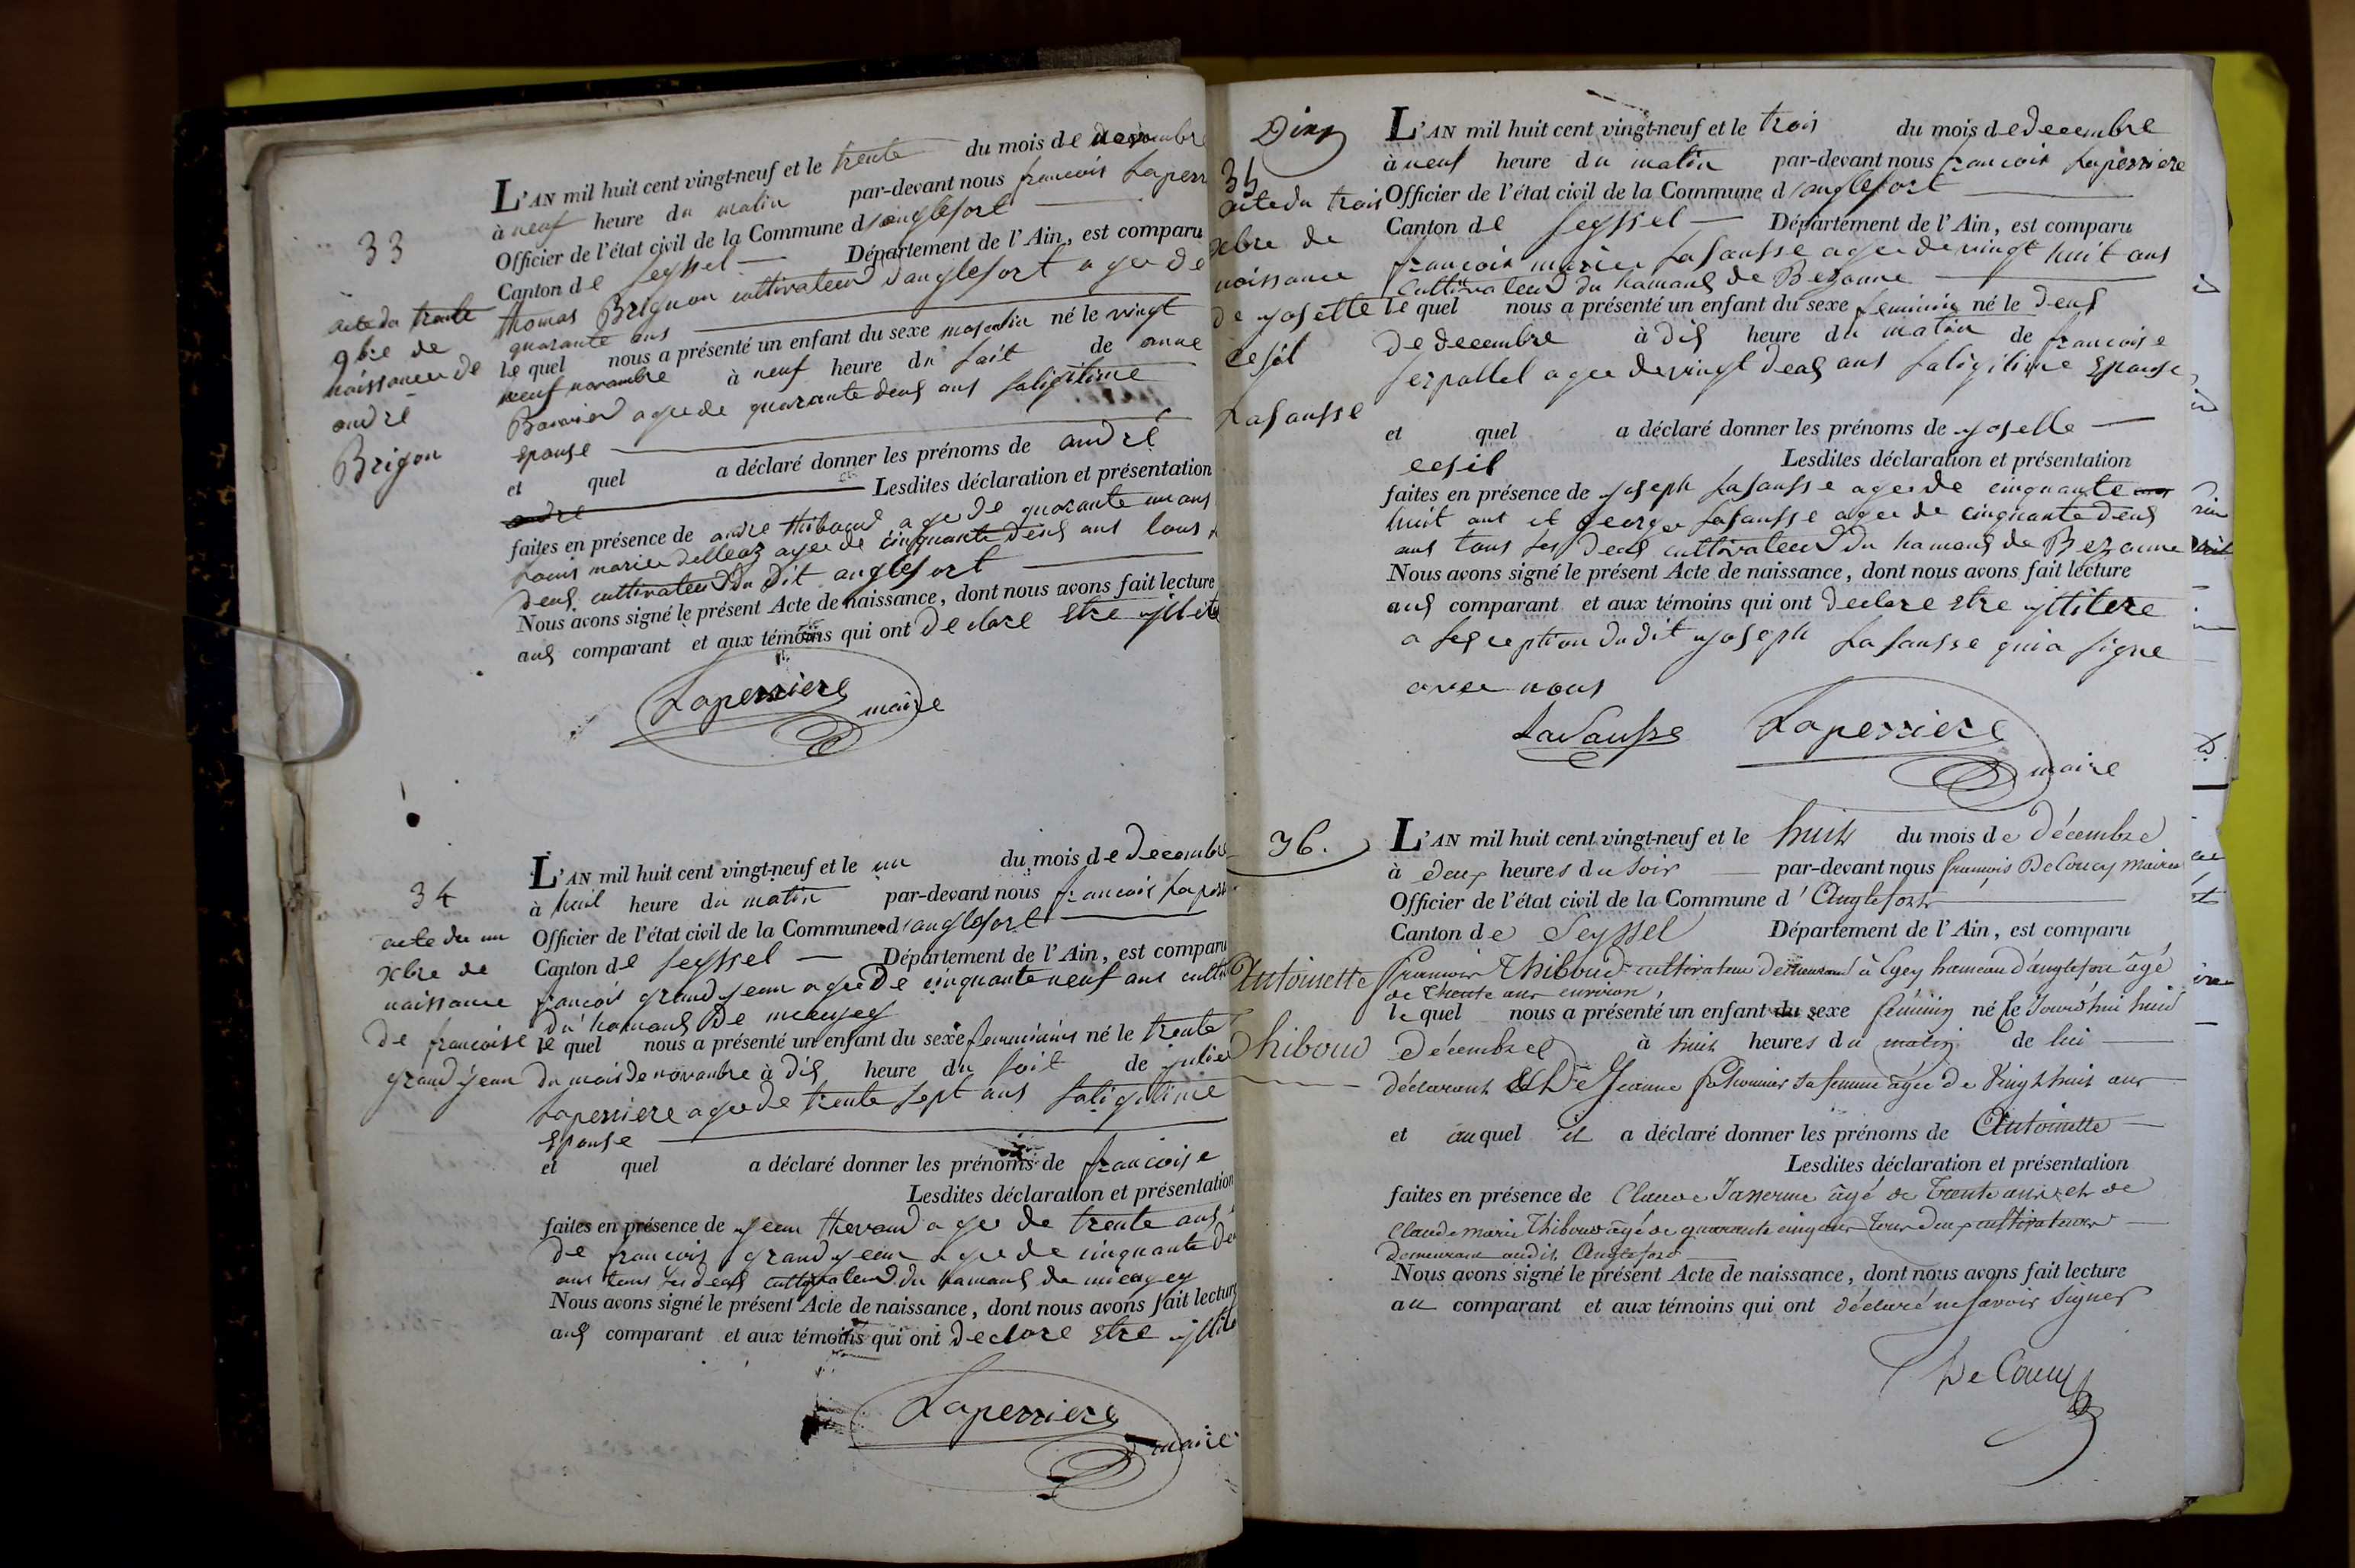 33
acte du trente
9bre de
naissance de
andré
Brigon
L'AN mil huit cent vingt-neuf et le trente du mois de novembre
à neuf heure du matin par-devant nous francois Laperr
Officier de l'état civil de la Commune d'anglefort
Canton de Seyssel Département de l'Ain, est comparu
thomas Brignon cultivateur d'anglefort agee de
quarante ans
le quel nous a présenté un enfant du sexe masculin né le vingt
neuf novembre à neuf heure du soit de anne
agee de quarante deux ans saligitime
epouse
et quel a déclaré donner les prénoms de andré
andre Lesdites déclaration et présentation
faites en présence de andre thiboud agee de quarante un ans
Louis marie dellaz agee de cinquante deux ans tous
deux cultivateur du dit anglefort
Nous avons signé le présent Acte de naissance, dont nous avons fait lecture
aux comparant et aux témoins qui ont declare estre
Laperriere
maire
34
acte du un
xbre de
naissance
de francoise
grandjean
L'AN mil huit cent vingt-neuf et le un du mois de decembre
à huit heure du matin par-devant nous francois
Officier de l'état civil de la Commune d'anglefort
Canton de Seyssel Département de l'Ain, est comparu
francois grandjean agee de cinquante neuf ans
du hamaux de
le quel nous a présenté un enfant du sexe né le trente
du mois de novembre à dix heure du soit de
Laperriere agee de trente sept ans saligitime
Epouse
et quel a déclaré donner les prénoms de francoise
Lesdites déclaration et présentation
faites en présence de jean thevoud agee de trente ans
de francois grandjean agee de cinquante
ans tous les deux cultivateur du hamaux de
Nous avons signé le présent Acte de naissance, dont nous avons fait lecture
aux comparant et aux témoins qui ont declare estre
Laperriere
maire
35
acte du trois
xbre de
naissance
de josette
cesil
Lasausse
L'AN mil huit cent vingt-neuf et le trois du mois de decembre
à neuf heure du matin par-devant nous francois Laperriere
Officier de l'état civil de la Commune d'anglefort
Canton de Seyssel Département de l'Ain, est comparu
francois marie Lasausse agee de vingt huit ans
cultivateur du hamaux de Bezonne
le quel nous a présenté un enfant du sexe feminin né le deux
de decembre à dix heure du matin de francoise
Serpollet agee de vingt deux ans saligitime Epouse
et quel a déclaré donner les prénoms de josette
cesil Lesdites déclaration et présentation
faites en présence de joseph Lasausse agee de cinquante
huit ans et george Lasausse agee de cinquante deux
ans tous les deux cultivateur du hamaux de Bezonne
Nous avons signé le présent Acte de naissance, dont nous avons fait lecture
aux comparant et aux témoins qui ont declare estre illitere
a lexception dudit joseph Lasausse qui a signe
avec nous
Lasausse Laperriere
maire
36.
Antoinette
Thiboud
L'AN mil huit cent vingt-neuf et le huit du mois de décembre
à deux heures du soir par-devant nous francois DeCoucy Maire
Officier de l'état civil de la Commune d'Anglefort
Canton de Seyssel Département de l'Ain, est comparu
francois Thiboud cultivateur demeurant à hameau d'anglefort âgé
de trente ans environ,
le quel nous a présenté un enfant du sexe féminin né le Jourd'hui huit
décembre à huit heures du matin de lui
déclarant & De Jeanne sa femme âgée de Vingt huit ans
et auquel il a déclaré donner les prénoms de Antoinette
Lesdites déclaration et présentation
faites en présence de Claude âgé de Trente ans et de
Claude marie Thiboud âgé de quarante cinq ans tous deux cultivateurs
Demeurant audit Anglefort
Nous avons signé le présent Acte de naissance, dont nous avons fait lecture
au comparant et aux témoins qui ont déclaré ne savoir signer
DeCoucy